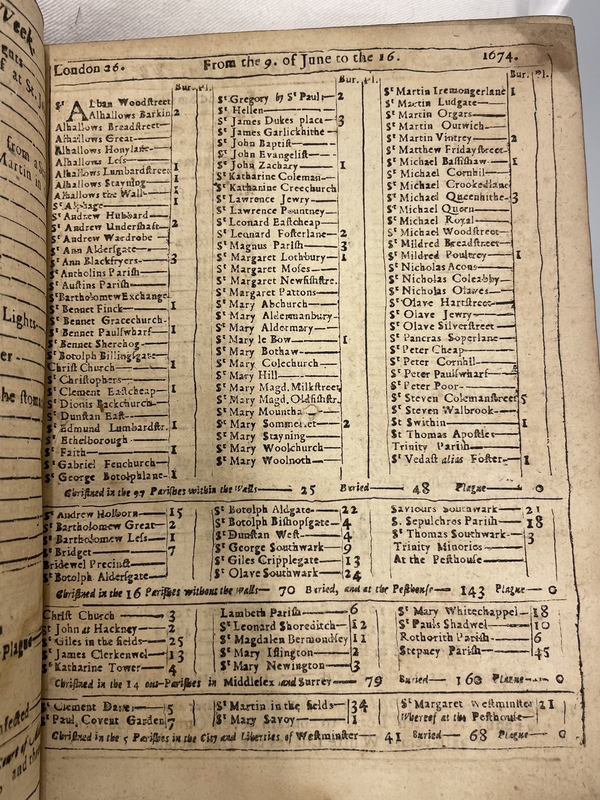 London 26. From the 9. of June to the 16. 1674.
Bur. Pl.
St Alban Woodstreet
Alhallows Barkin 2
Alhallows Breadstreet
Alhallows Great
Alhallows Honylane
Alhallows Less
Alhallows Lumbardstreet 1
Alhallows Stayning 1
Alhallows the Wall 1
St Alphage 1
St Andrew Hubbard
St Andrew Undershaft 2
St Andrew Wardrobe
St Ann Aldersgate
St Ann Blackfryers 3
St Antholins Parish
St Austins Parish
St Bartholomew Exchange
St Bennet Finck 1
St Bennet Gracechurch
St Bennet Paulswharf 1
St Bennet Sherehog
St Botolph Billingsgate
Christ Church 1
St Christophers
St Clement Eastcheap 1
St Dionis Backchurch
St Dunstan East
St Edmund Lumbardstr. 1
St Ethelborough
St Faith 1
St Gabriel Fenchurch
St George Botolphlane 1
Bur. Pl.
St Gregory by St Paul 2
St Hellen
St James Dukes place 3
St James Garlickhithe
St John Baptist
St John Evangelist
St John Zachary 1
St Katharine Coleman
St Katharine Creechurch
St Lawrence Jewry
St Lawrence Pountney
St Leonard Eastcheap
St Leonard Fosterlane 2
St Magnus Parish 3
St Margaret Lothbury 1
St Margaret Moses
St Margaret Newfishstre.
St Margaret Pattons
St Mary Abchurch
St Mary Aldermanbury
St Mary Aldermary
St Mary le Bow 1
St Mary Bothaw
St Mary Colechurch
St Mary Hill
St Mary Magd. Milkstreet
St Mary Magd. Oldfishstr.
St Mary Mountha
St Mary Sommerset 2
St Mary Stayning
St Mary Woolchurch
St Mary Woolnoth
Bur. Pl.
St Martin Iremongerlane 1
St Martin Ludgate
St Martin Orgars
St Martin Outwich
St Martin Vintrey 2
St Matthew Fridaystreet
St Michael Bassishaw 1
St Michael Cornhil
St Michael Crookedlane
St Michael Queenhithe 3
St Michael Quern
St Michael Royal
St Michael Woodstreet
St Mildred Breadstreet
St Mildred Poultrey 1
St Nicholas Acons
St Nicholas Coleabby
St Nicholas Olaves
St Olave Hartstreet
St Olave Jewry
St Olave Silverstreet
St Pancras Soperlane
St Peter Cheap
St Peter Cornhil
St Peter Paulswharf
St Peter Poor
St Steven Colemanstreet 5
St Steven Walbrook
St Swithin 1
St Thomas Apostles
Trinity Parish
St Vedast alias Foster 1
Christned in the 97 Parishes within the Walls 25 Buried 48 Plague 0
St Andrew Holborn 15
St Bartholomew Great 2
St Bartholomew Less 1
St Bridget 7
Bridewel Precinct
St Botolph Aldersgate
St Botolph Aldgate 22
St Botolph Bishopsgate 4
St Dunstan West 4
St George Southwark 9
St Giles Cripplegate 13
St Olave Southwark 24
Saviours Southwark 21
S. Sepulchres Parish 18
St Thomas Southwark 3
Trinity Minories
At the Pesthouse
Christned in the 16 Parishes without the Walls 70 Buried, and at the Pesthouse 143 Plague 0
Christ Church 3
St John at Hackney 2
St Giles in the fields 25
St James Clerkenwel 13
St Katharine Tower 4
Lambeth Parish 6
St Leonard Shoreditch 12
St Magdalen Bermondsey 11
St Mary Islington 2
St Mary Newington 3
St Mary Whitechappel 18
St Pauls Shadwel 10
Rothorith Parish 6
Stepney Parish 45
Christned in the 14 out-Parishes in Middlesex and Surrey 79 Buried 160 Plague 0
St Clement Danes 5
St Paul, Covent Garden 7
St Martin in the fields 34
St Mary Savoy 1
St Margaret Westminster 21
Whereof at the Pesthouse
Christned in the 5 Parishes in the City and Liberties of Westminster 41 Buried 68 Plague 0